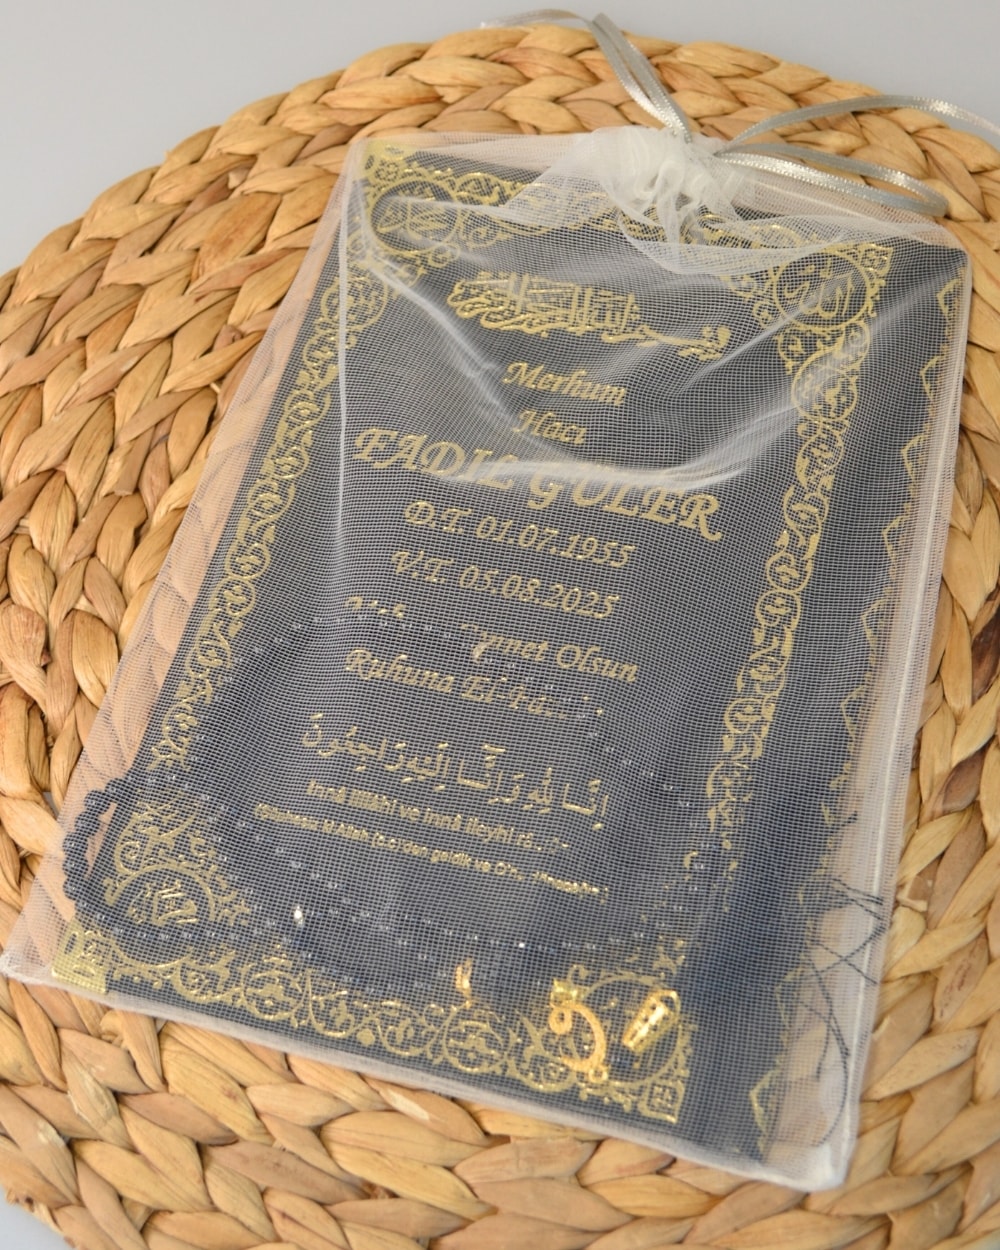 بسم الله الرحمن الرحيم
Merhum
Hacı
FADIL GÜLER
D.T. 01.07.1955
V.T. 05.08.2025
Olsun
Ruhuna El-Fatiha
إنا لله وإنا إليه راجعون
İnnâ lillâhi ve innâ ileyhi
Allah (c.c)'den geldik ve